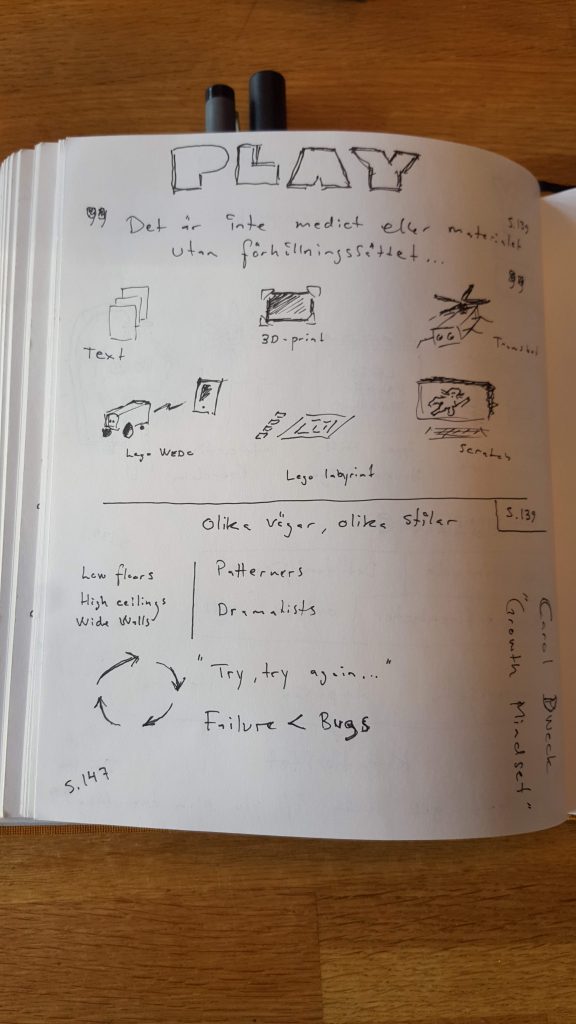 PLAY
" Det är inte mediet eller materialet s.139
utan förhållningssättet... "
Text
3D-print
Lego WEDO
Lego labyrint
Scratch
Olika vägar, olika stilar s.139
Low floors
High ceilings
Wide Walls
Patterners
Dramatists
"Try, try again..."
Failure < Bugs
s.147
Carol Dweck
"Growth Mindset"